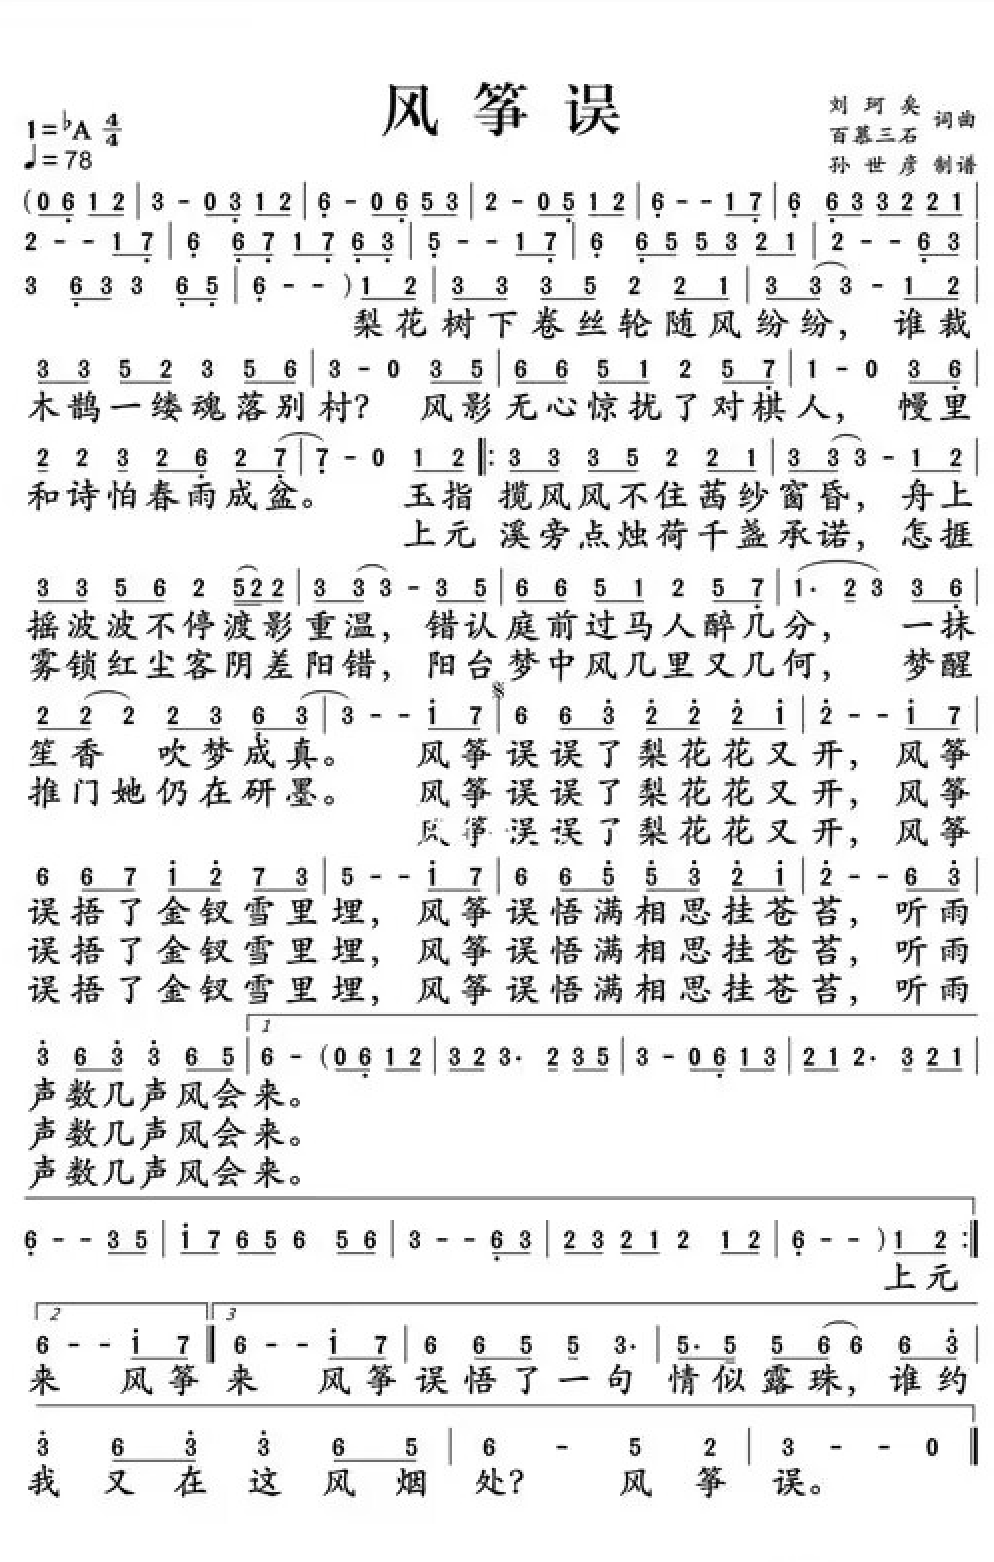 风筝误
刘珂矣
百慕三石 词曲
孙世彦 制谱
1=♭A 4/4
♩=78
(0 6 1 2 | 3 - 0 3 1 2 | 6 - 0 6 5 3 | 2 - 0 5 1 2 | 6 - - 1 7 | 6 6 3 3 2 2 1 |
2 - - 1 7 | 6 6 7 1 7 6 3 | 5 - - 1 7 | 6 6 5 5 3 2 1 | 2 - - 6 3 |
3 6 3 3 6 5 | 6 - - ) 1 2 | 3 3 3 5 2 2 1 | 3 3 3 - 1 2 |
梨花树下卷丝轮随风纷纷，谁裁
3 3 5 2 3 5 6 | 3 - 0 3 5 | 6 6 5 1 2 5 7 | 1 - 0 3 6 |
木鹊一缕魂落别村？ 风影无心惊扰了对棋人， 幔里
2 2 3 2 6 2 7 | 7 - 0 1 2 ‖: 3 3 3 5 2 2 1 | 3 3 3 - 1 2 |
和诗怕春雨成盆。 玉指揽风风不住茜纱窗昏，舟上
上元溪旁点烛荷千盏承诺，怎捱
3 3 5 6 2 5 2 2 2 | 3 3 3 - 3 5 | 6 6 5 1 2 5 7 | 1· 2 3 3 6 |
摇波波不停渡影重温， 错认庭前过马人醉几分， 一抹
雾锁红尘客阴差阳错， 阳台梦中风几里又几何， 梦醒
2 2 2 2 3 6 3 | 3 - - 1 7 | 6 6 3 2 2 2 1 | 2 - - 1 7 |
笙香 吹梦成真。 风筝误误了梨花花又开，风筝
推门她仍在研墨。 风筝误误了梨花花又开，风筝
风筝误误了梨花花又开，风筝
6 6 7 1 2 7 3 | 5 - - 1 7 | 6 6 5 5 3 2 1 | 2 - - 6 3 |
误捂了金钗雪里埋， 风筝误悟满相思挂苍苔，听雨
误捂了金钗雪里埋， 风筝误悟满相思挂苍苔，听雨
误捂了金钗雪里埋， 风筝误悟满相思挂苍苔，听雨
1
3 6 3 3 6 5 | 6 - (0 6 1 2 | 3 2 3· 2 3 5 | 3 - 0 6 1 3 | 2 1 2· 3 2 1 |
声数几声风会来。
声数几声风会来。
声数几声风会来。
6 - - 3 5 | 1 7 6 5 6 5 6 | 3 - - 6 3 | 2 3 2 1 2 1 2 | 6 - - ) 1 2 :‖
上元
2 3
6 - - 1 7 ‖ 6 - - 1 7 | 6 6 5 5 3· | 5· 5 5 6 6 6 3 |
来 风筝 来 风筝误悟了一句 情似露珠，谁约
3 6 3 3 6 5 | 6 - 5 2 | 3 - - 0 ‖
我又在这风烟处？ 风筝误。